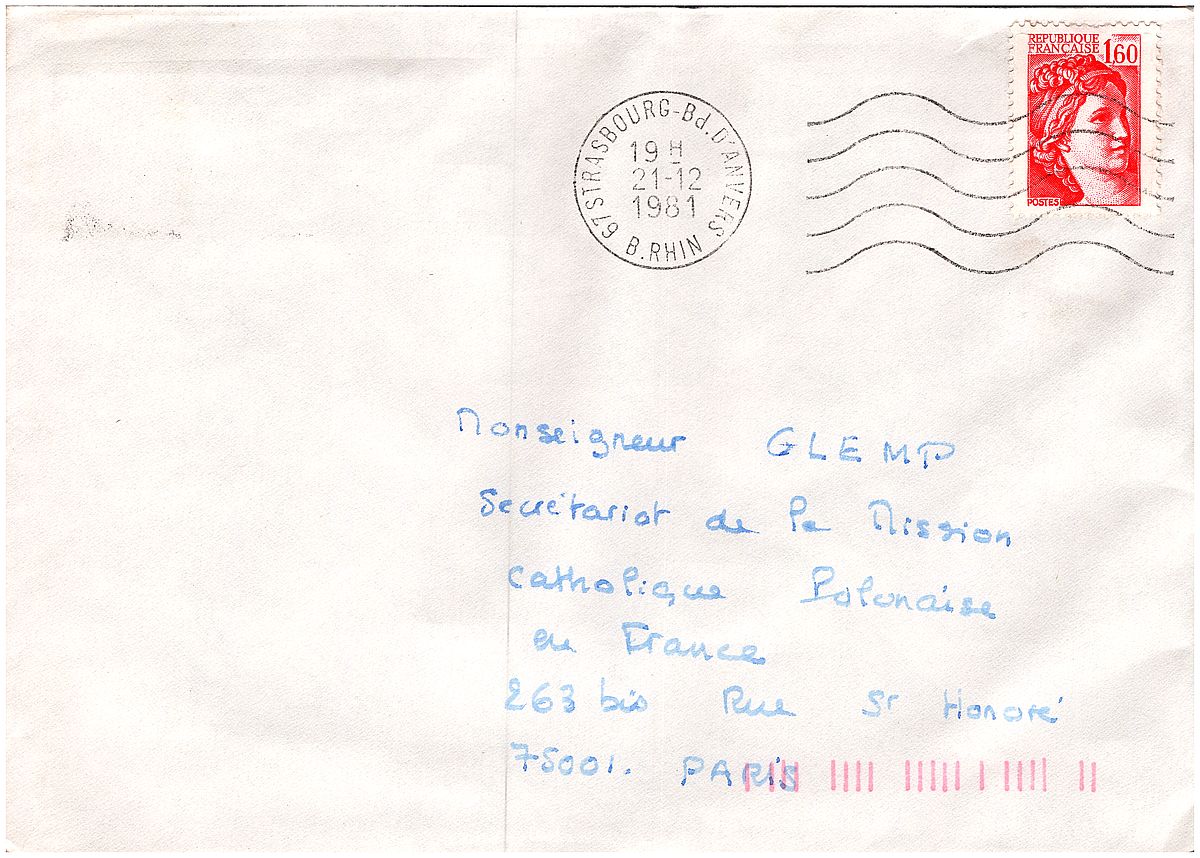 REPUBLIQUE
FRANÇAISE 1,60
POSTES
67 STRASBOURG-Bd. D'ANVERS
19 H
21-12
1981
B. RHIN
Monseigneur GLEMP
Secrétariat de la Mission
Catholique Polonaise
en France
263 bis Rue St Honoré
75001. PARIS